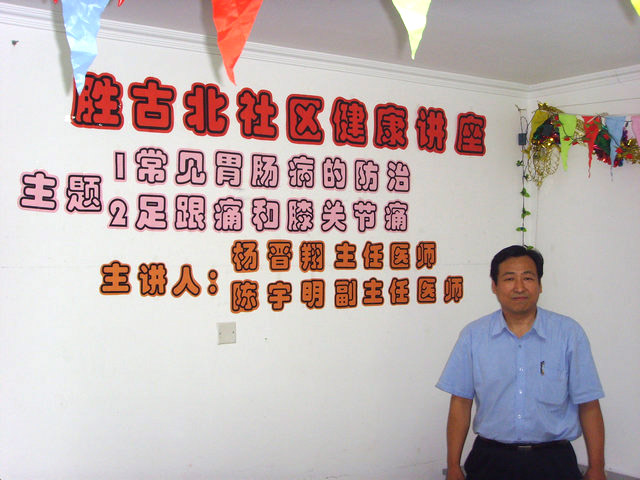 胜古北社区健康讲座
主题
1常见胃肠病的防治
2足跟痛和膝关节痛
主讲人：
杨晋翔主任医师
陈宇明副主任医师